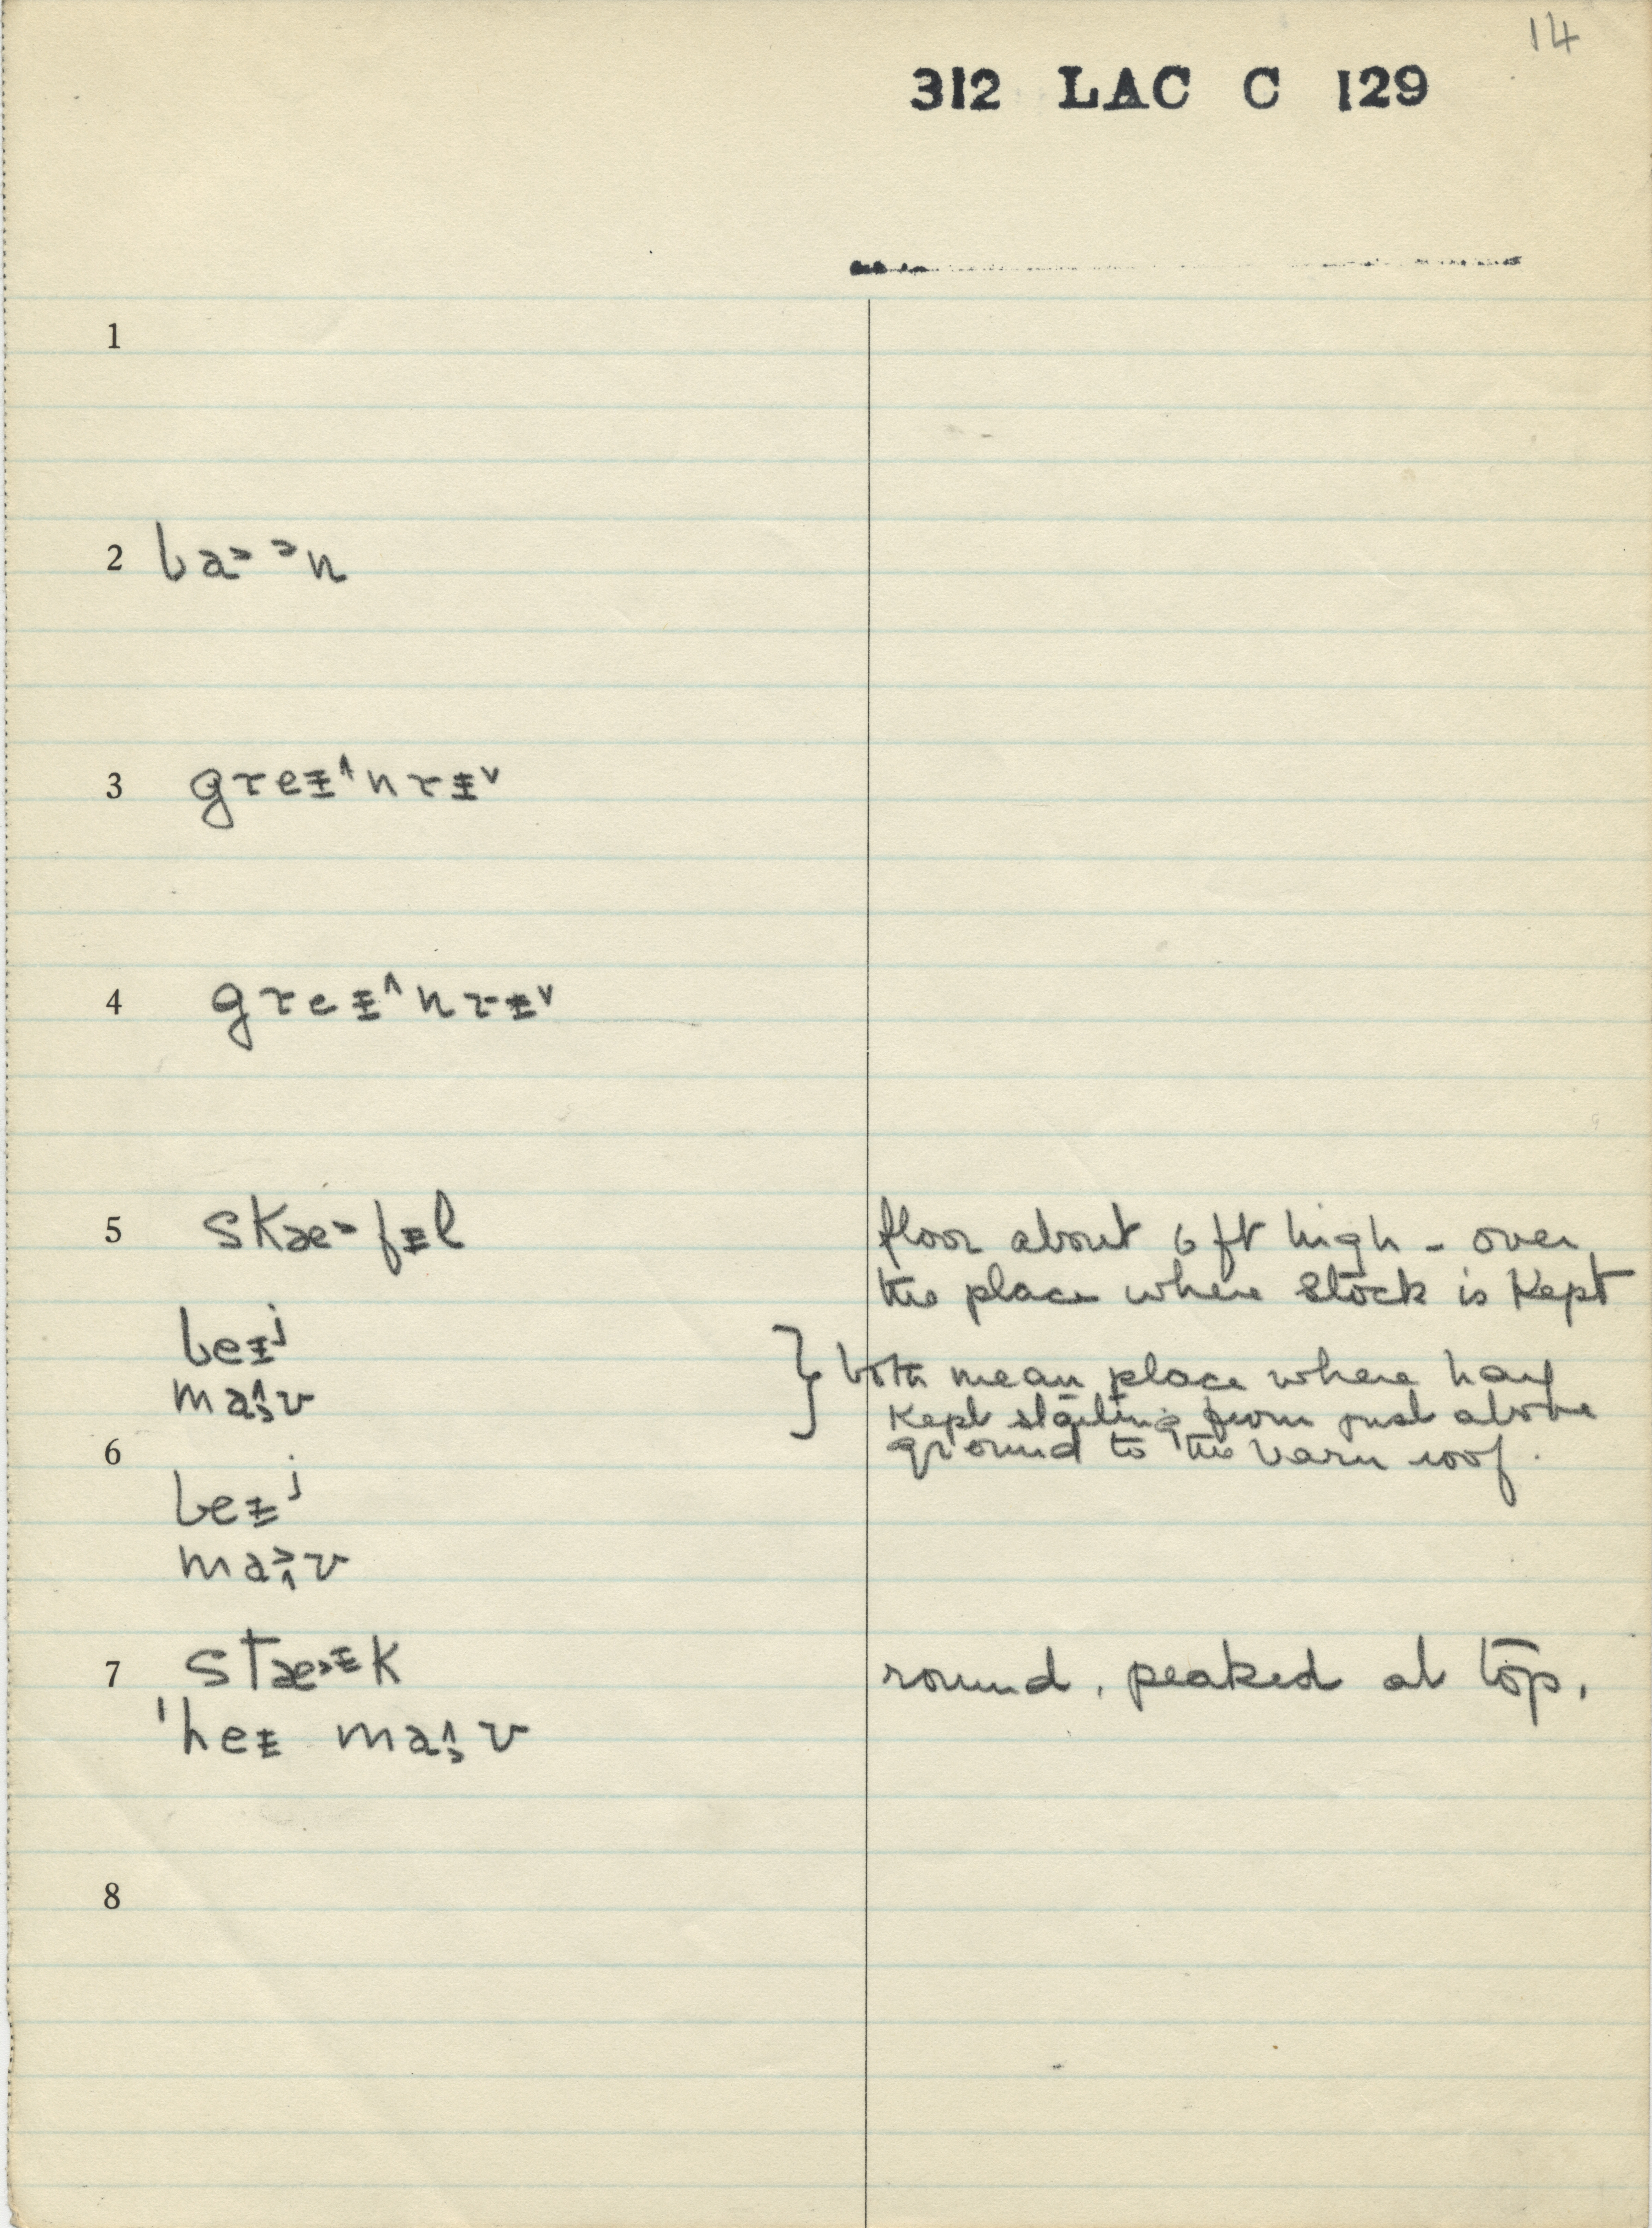 14
312 LAC C 129
1
2 ba˃ ˃n
3 greɨ˄nrɨ˅
4 greɨ˄nrɨ˅
5 skæ˃fɨl
floor about 6 ft high - over
the place where stock is kept
beɨʲ
} both mean place where hay
ma˄˒v
kept starting from just above
6
ground to the barn roof.
beɨʲ
ma˃˄v
7 stæ˃ɨk
round, peaked at top.
'heɨ ma˄˒v
8